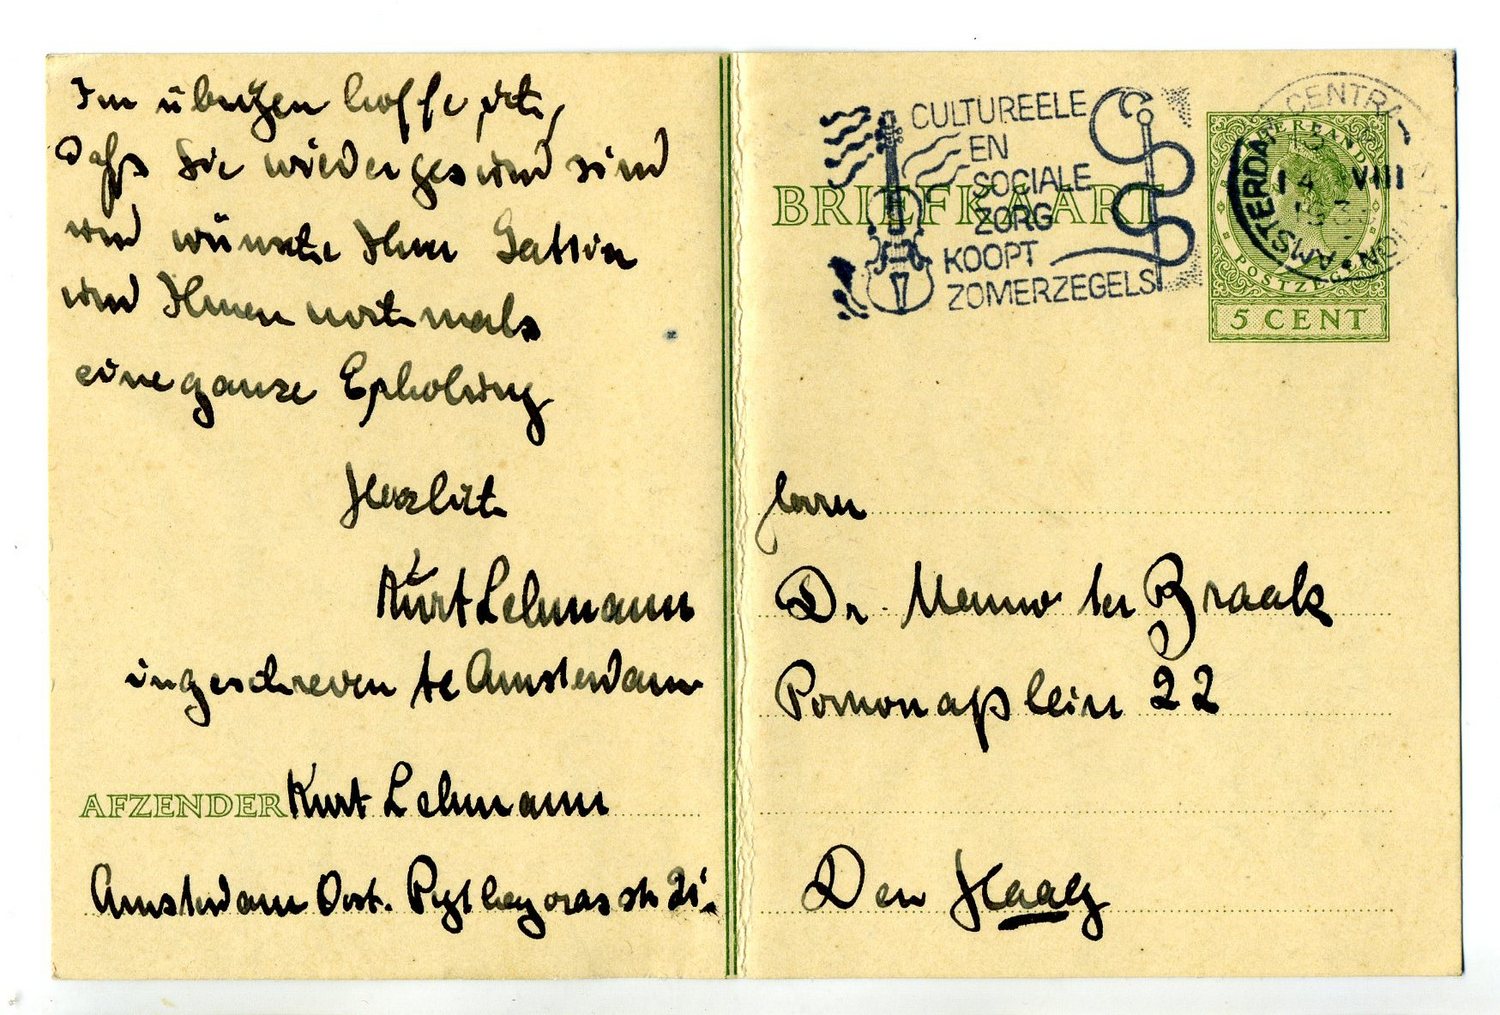 Im übrigen hoffe ich,
dass Sie wieder gesund sind
und wünsche Ihrer Gattin
und Ihnen nochmals
eine ganze Erholung
Herzlich
Kurt Lehmann
ingeschreven te Amsterdam
AFZENDER Kurt Lehmann
Amsterdam Oost. Pythagorasstr
CULTUREELE
EN
SOCIALE
ZORG
KOOPT
ZOMERZEGELS
BRIEFKAART
AMSTERDAM CENTRAAL STATION
14 VIII
NEDERLAND
POSTZEGEL
5 CENT
Herrn
Dr. Menno ter Braak
Pomonaplein 22
Den Haag